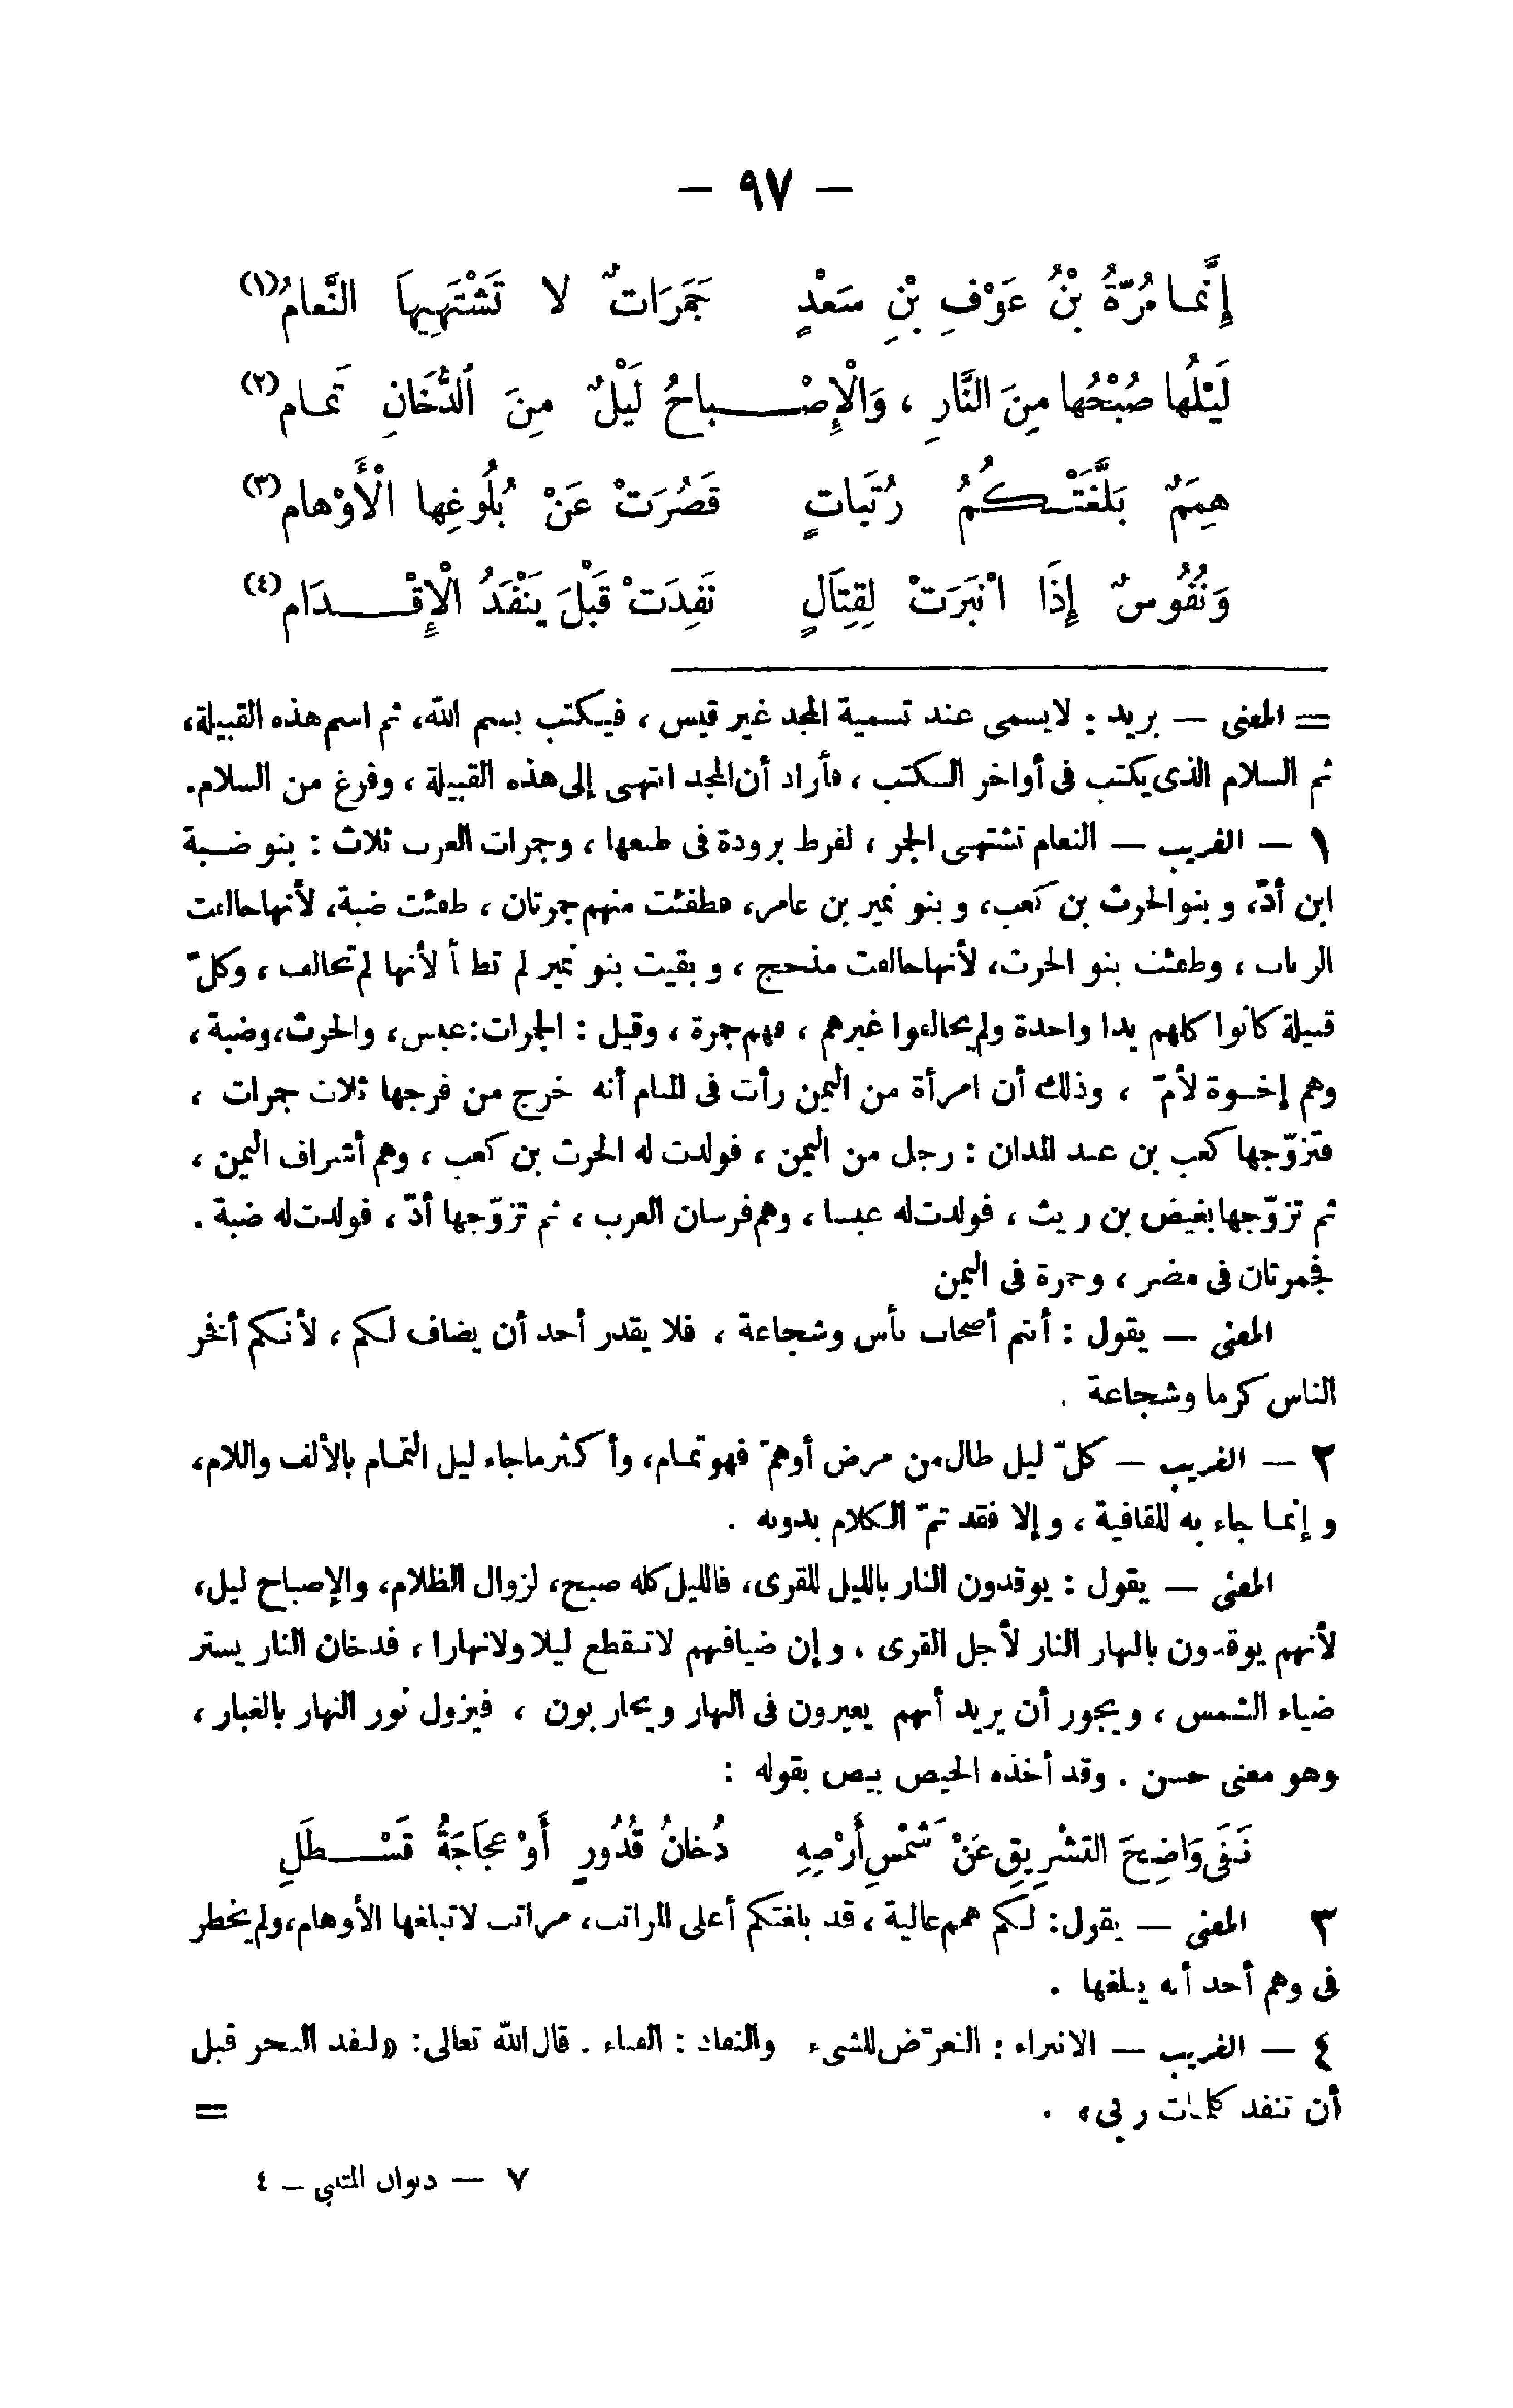 — ٩٧ —
إِنَّمَا مُرَّةُ بْنُ عَوْفِ بْنِ سَعْدٍ جَمَرَاتٌ لا تَشْتَهِيهَا النَّعامُ(١)
لَيْلُها صُبْحُها مِنَ النَّارِ ، وَالْإِصْـباحُ لَيْلٌ مِنَ الدُّخَانِ تَمام(٢)
هِمَمٌ بَلَّغَتْـكُمُ رُتَباتٍ قَصُرَتْ عَنْ بُلُوغِها الْأَوْهام(٣)
وَنُفُوسٌ إِذَا انْبَرَتْ لِقِتَالٍ نَفِدَتْ قَبْلَ يَنْفَدُ الْإِقْـدَام(٤)
= المعنى — يريد : لايسمى عند تسمية المجد غير قيس ، فيكتب بسم الله، ثم اسم هذه القبيلة،
ثم السلام الذى يكتب فى أواخر الكتب ، فأراد أن المجد انتهى إلى هذه القبيلة ، وفرغ من السلام.
١ — الغريب — النعام تشتهى الجمر ، لفرط برودة فى طبعها ، وجمرات العرب ثلاث : بنو ضبة
ابن أدّ، و بنو الحرث بن كعب، و بنو نمير بن عامر، فطفئت منهم جمرتان ، طفئت ضبة، لأنها حالفت
الرباب ، وطفئت بنو الحرث، لأنها حالفت مذحج ، و بقيت بنو نمير لم تطفأ لأنها لم تحالف ، وكلّ
قبيلة كانوا كلهم يدا واحدة ولم يحالفوا غيرهم ، فهم جمرة ، وقيل : الجمرات: عبس، والحرث، وضبة ،
وهم إخـوة لأمّ ، وذلك أن امرأة من اليمن رأت فى المنام أنه خرج من فرجها ثلاث جمرات ،
فتزوّجها كعب بن عبد المدان : رجل من اليمن ، فولدت له الحرث بن كعب ، وهم أشراف اليمن ،
ثم تزوّجها بغيض بن ريث ، فولدت له عبسا ، وهم فرسان العرب ، ثم تزوّجها أدّ ، فولدت له ضبة .
فجمرتان فى مضر ، وجمرة فى اليمن
المعنى — يقول : أنتم أصحاب بأس وشجاعة ، فلا يقدر أحد أن يضاف لكم ، لأنكم أفخر
الناس كرما وشجاعة .
٢ — الغريب — كلّ ليل طال من مرض أوهمّ فهو تمام، وأكثر ماجاء ليل التمام بالألف واللام،
و إنما جاء به للقافية ، و إلا فقد تمّ الكلام بدونه .
المعنى — يقول : يوقدون النار بالليل للقرى، فالليل كله صبح، لزوال الظلام، والإصباح ليل،
لأنهم يوقدون بالنهار النار لأجل القرى ، و إن ضيافهم لاتنقطع ليلا ولانهارا ، فدخان النار يستر
ضياء الشمس ، و يجوز أن يريد أنهم يغيرون فى النهار و يحاربون ، فيزول نور النهار بالغبار ،
وهو معنى حسن . وقد أخذه الحيص بيص بقوله :
نَـفَى وَاضِحَ التشْرِيقِ عَنْ شَمْسِ أَرْضِهِ دُخانُ قُدُورٍ أَوْ عَجاجَةُ قَسْـطَلِ
٣ المعنى — يقول: لكم همم عالية ، قد بلغتكم أعلى المراتب، مراتب لاتبلغها الأوهام، ولم يخطر
فى وهم أحد أنه يبلغها .
٤ — الغريب — الانبراء : التعرّض للشىء والنفاد : الفناء . قال الله تعالى: «لنفد البحر قبل
أن تنفد كلمات ربى» . =
٧ — ديوان المتنبي – ٤